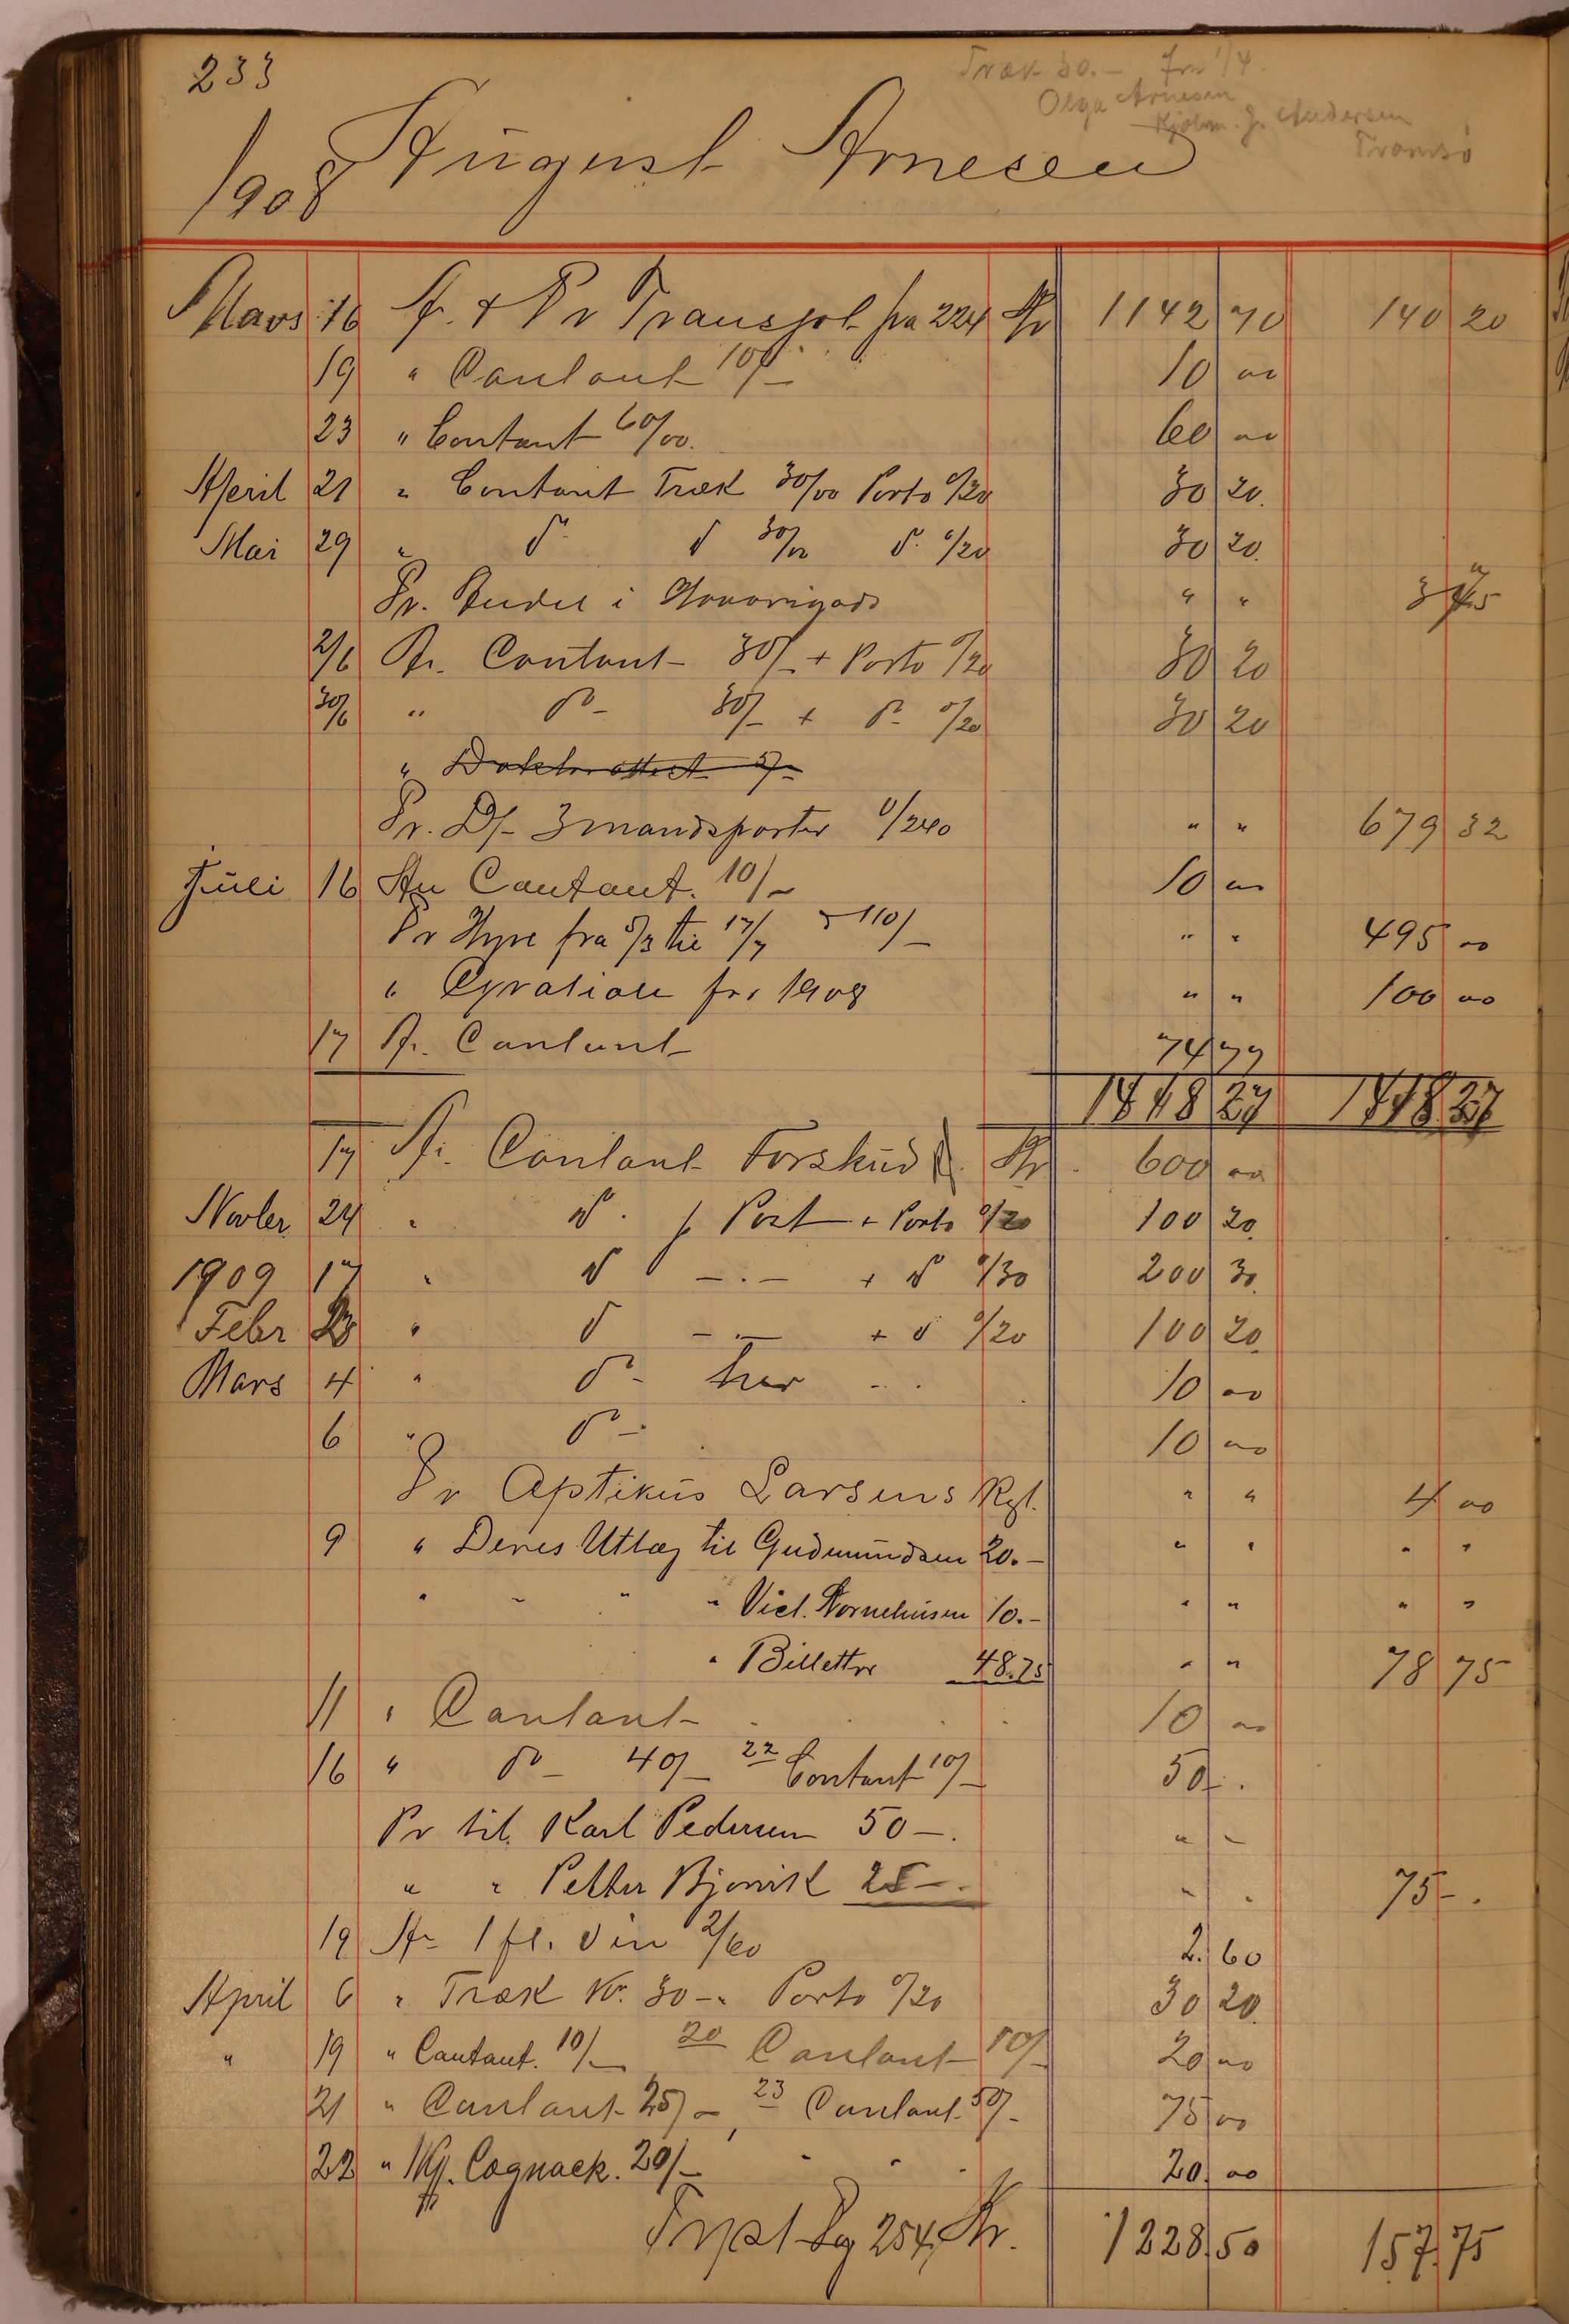 233
Træk 30.- fra 1/4.
Olga Arnesen
Kjøbm. J. Andersen
Tromsø
1908 August Arnesen
Mars 16 An. & Pr Transpt. fra 224 Kr 1142 70 140 20
19 " Contant 10/- 10 00
23 " Contant 60/00. 60 00
April 21 " Contant Træk 30/00 Porto 0/20 30 20.
Mai 29 " do do 30/00 do. 0/20 30 20.
Pr. Andel i " " 3 75
2/6 An. Contant 30/- + Porto 0/20 30 20
30/6 " do - 30/- + do - 0/20 30 20
" 5/-
Pr. D/- 3mandsparter 1/240 " " 679 32
Juli 16 An Contant. 10/- 10 00
Pr Hyre fra 5/3 til 17/7 110/- " " 495 00
" Gration for 1908 " " 100 00
17 An. Contant 74 77
1418 27 1418 27
17 An. Contant Forskud Kr. 600 00
Novber 24 " do. p Post + Porto 0/20 100 20.
1909 17 " do -.- + do 0/30 200 30.
Febr 23 " do -.- + do 0/20 100 20.
Mars 4 " do - her 10 00
6 " do - 10 00
Pr Optikus Larsens Rgl. " " 4 00
9 " Deres Utlæg til Gudmundsen 20.- " " " "
" " " " Vict. Kornelius­sen 10.- " " " "
" Billetter 48.75 " " 78 75
11 " Contant 10 00
16 " do - 40/- 22 Contant 10/- 50 -.
Pr til Karl Pedersen 50 -. " "
" " Petter Bjørvik 25 -. " " 75 -.
19 An 1 fl. vin 2/60 2. 60
April 6 " Træk Kr. 30 -. Porto 0/20 30 20.
" 19 " Contant. 10/- 20 Contant 10/- 20 00
21 " Contant 25/-, 23 Contant. 50/- 75 00
22 " Cognack. 20/- 20. 00
Trpt Pg 254, Kr. 1228.50 157.75